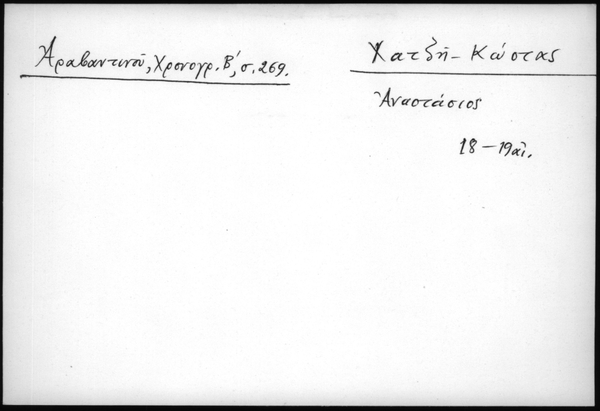 Ἀραβαντινοῦ, Χρονογρ. Β΄, σ. 269.
Χατζῆ – Κώστας
Ἀναστάσιος
18 – 19 αἰ.